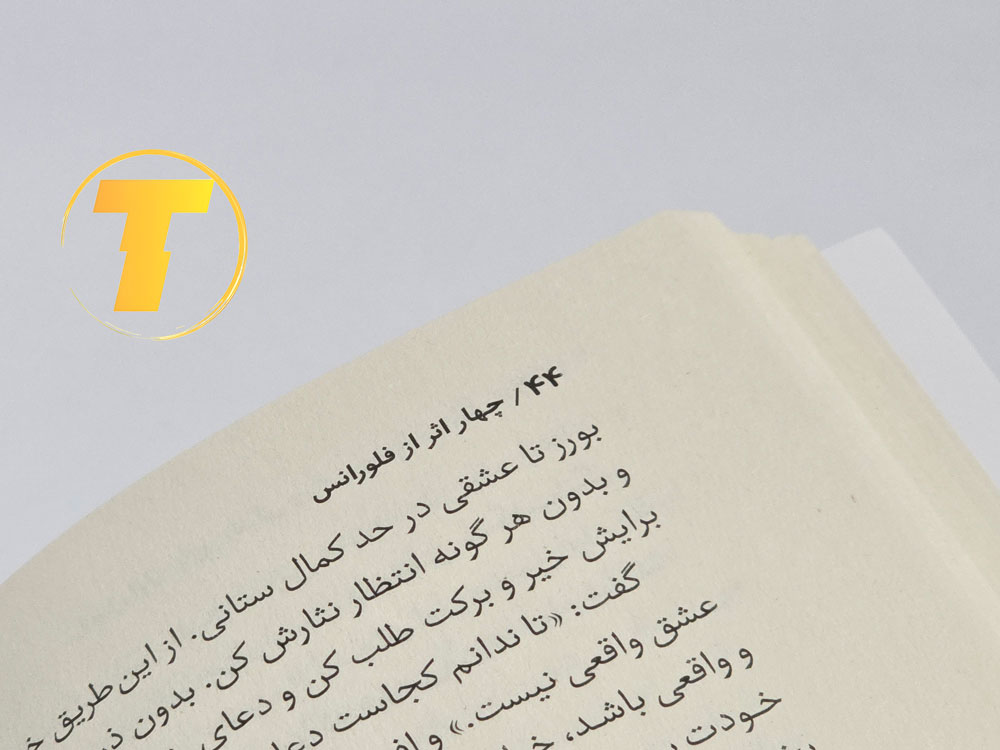 T
۴۴ / چهار اثر از فلورانس
بورز تا عشقی در حد کمال ستانی. از این طریق
و بدون هر گونه انتظار نثارش کن. بدون
برایش خیر و برکت طلب کن و دعای
گفت: «تا ندانم کجاست
عشق واقعی نیست.» و
و واقعی باشد،
خودت